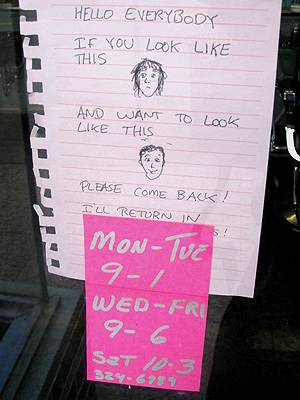 HELLO EVERYBODY
IF YOU LOOK LIKE
THIS
AND WANT TO LOOK
LIKE THIS
PLEASE COME BACK!
I'LL RETURN IN
S!
MON-TUE
9-1
WED-FRI
9-6
SAT 10-3
324-6989